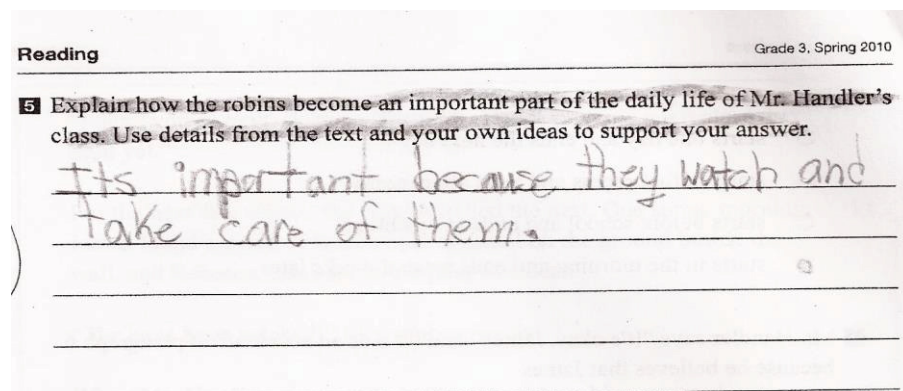 Reading
Grade 3, Spring 2010
5 Explain how the robins become an important part of the daily life of Mr. Handler's
class. Use details from the text and your own ideas to support your answer.
Its important because they watch and
take care of them.